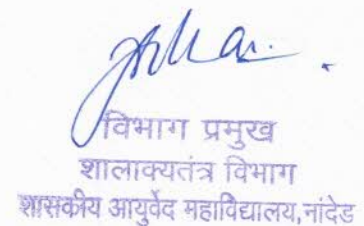 विभाग प्रमुख
शालाक्यतंत्र विभाग
शासकीय आयुर्वेद महाविद्यालय,नांदेड